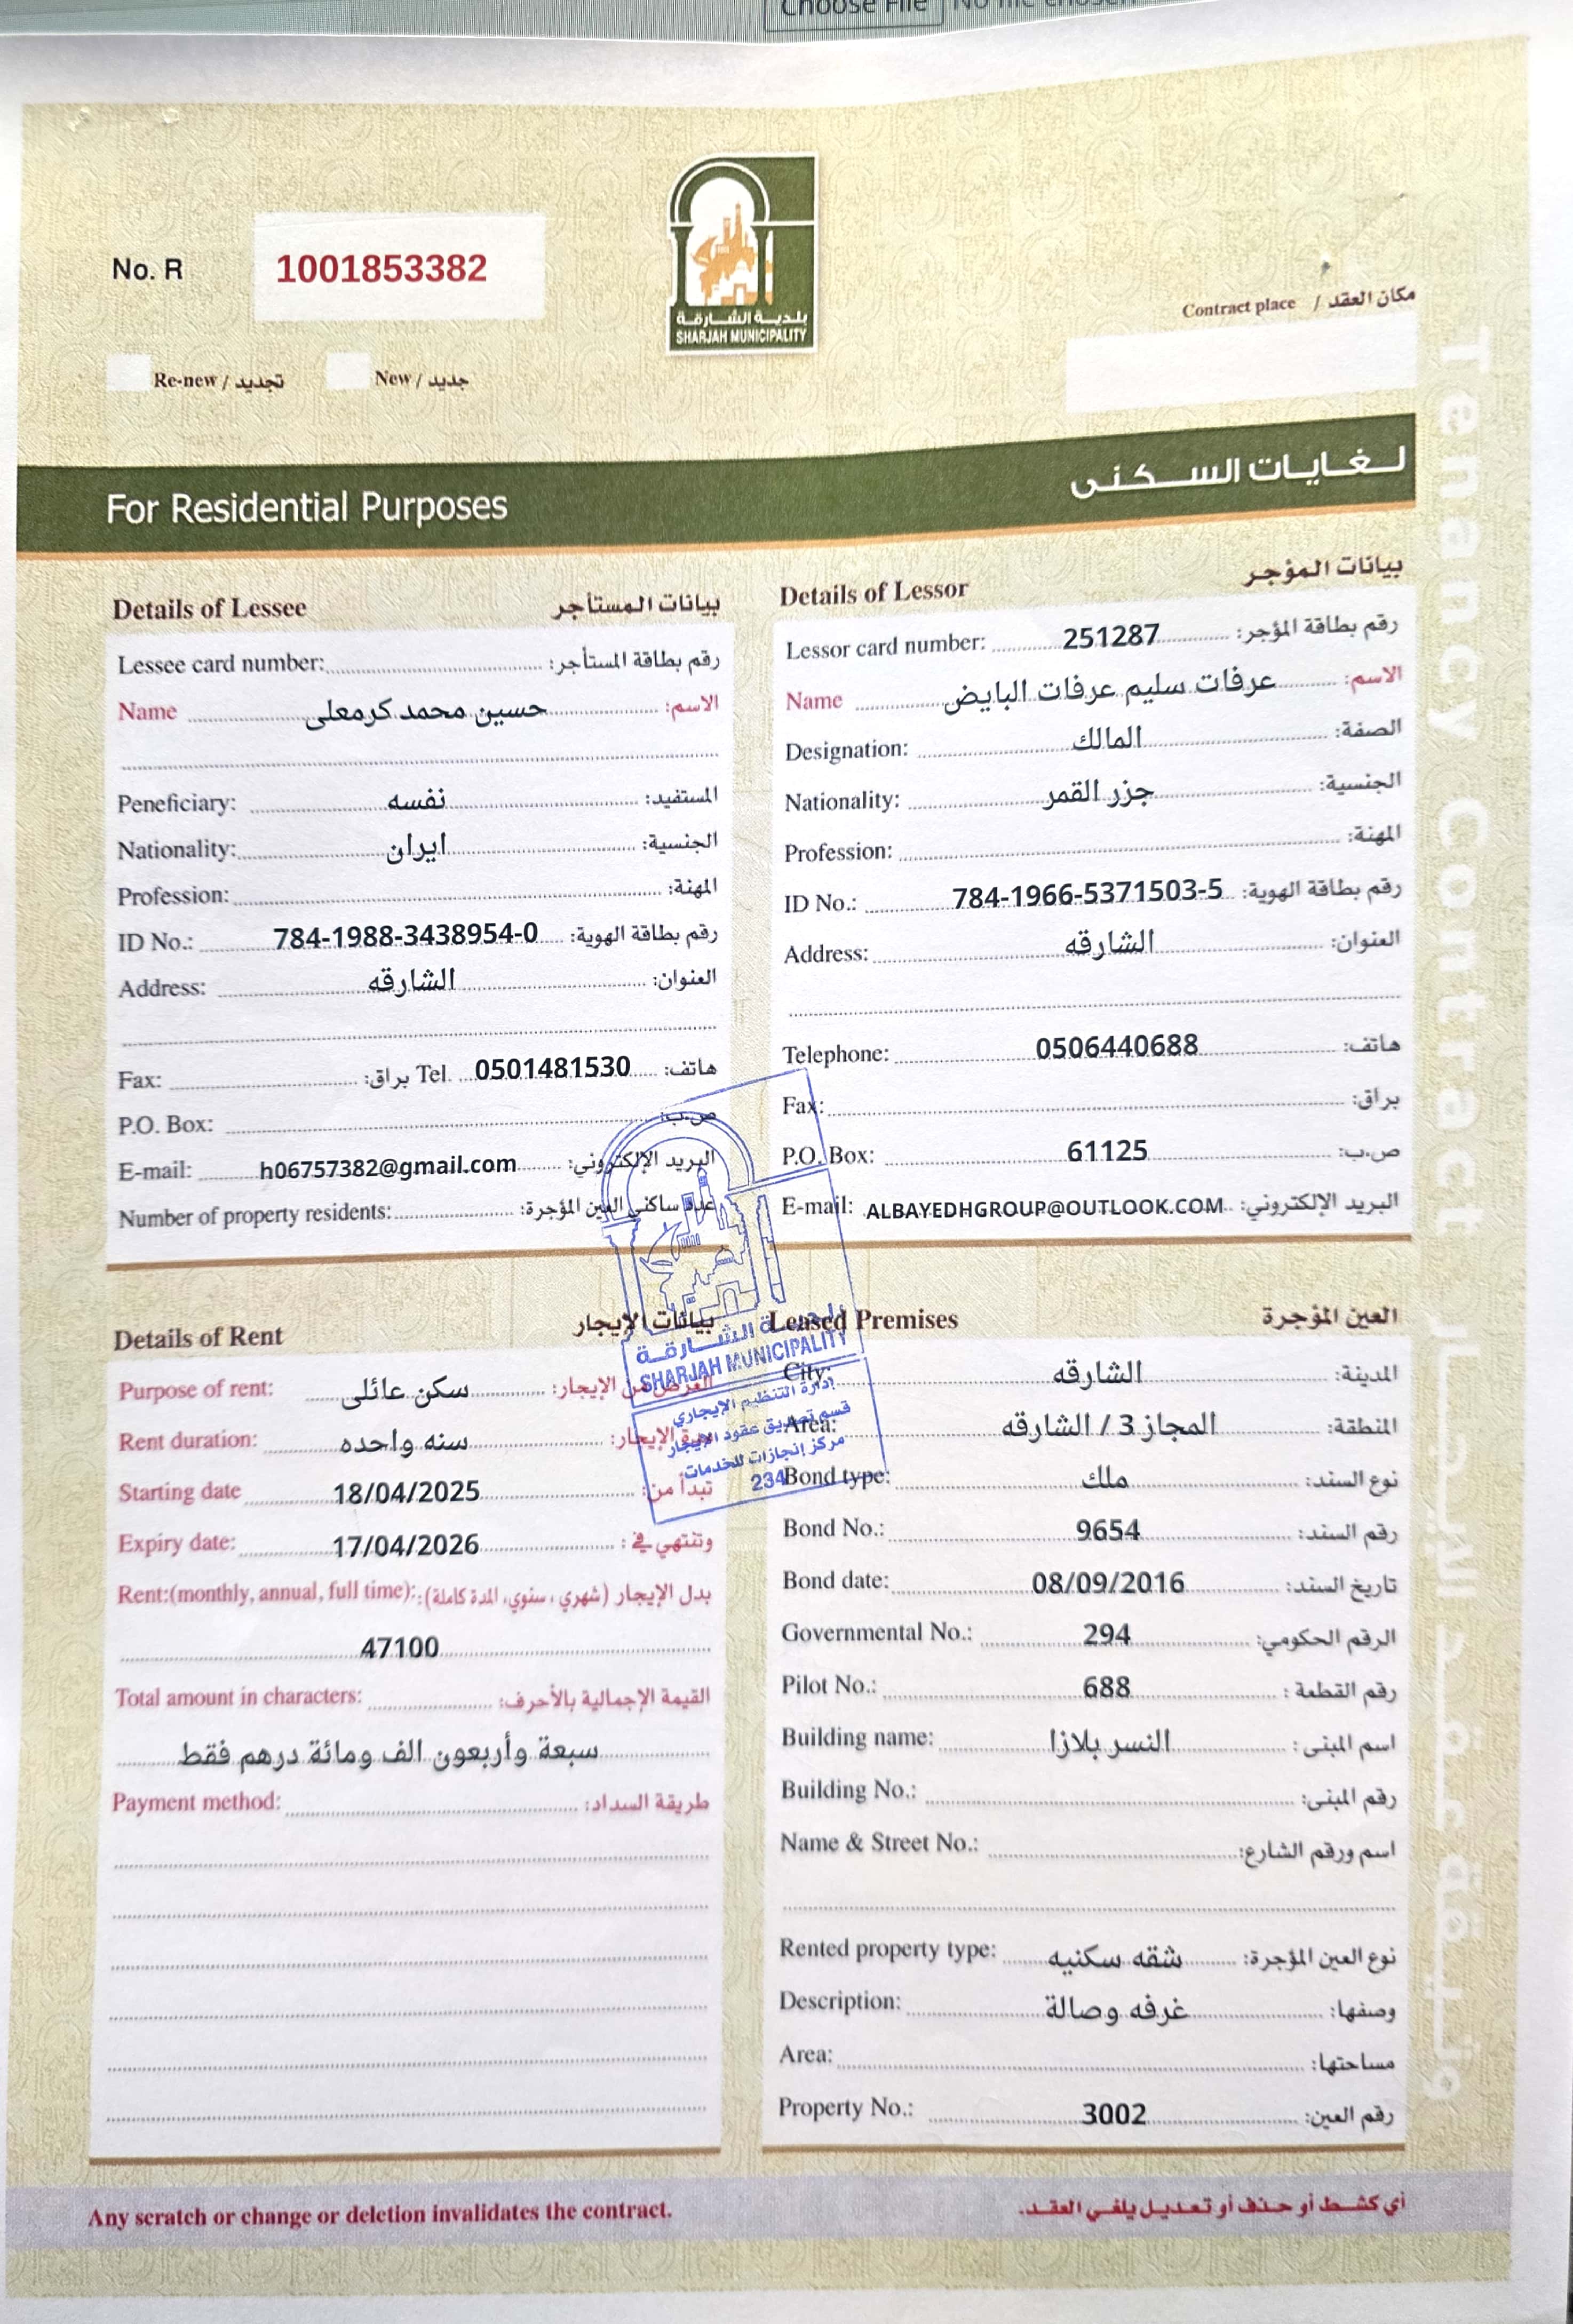 Choose File No file chosen
No. R 1001853382
بلدية الشارقة
SHARJAH MUNICIPALITY
Contract place / مكان العقد
Re-new / تجديد New / جديد
For Residential Purposes لغايات السكنى
Tenancy Contract
Details of Lessee بيانات المستأجر
Lessee card number: رقم بطاقة المستأجر:
Name حسين محمد كرمعلى الاسم:
Peneficiary: نفسه المستفيد:
Nationality: ايران الجنسية:
Profession: المهنة:
ID No.: 784-1988-3438954-0 رقم بطاقة الهوية:
Address: الشارقه العنوان:
Fax: براق: Tel. 0501481530 هاتف:
P.O. Box: ص.ب:
E-mail: h06757382@gmail.com البريد الإلكتروني:
Number of property residents: عدد ساكني العين المؤجرة:
Details of Lessor بيانات المؤجر
Lessor card number: 251287 رقم بطاقة المؤجر:
Name عرفات سليم عرفات البايض الاسم:
Designation: المالك الصفة:
Nationality: جزر القمر الجنسية:
Profession: المهنة:
ID No.: 784-1966-5371503-5 رقم بطاقة الهوية:
Address: الشارقه العنوان:
Telephone: 0506440688 هاتف:
Fax: براق:
P.O. Box: 61125 ص.ب:
E-mail: ALBAYEDHGROUP@OUTLOOK.COM البريد الإلكتروني:
Details of Rent بيانات الإيجار
Purpose of rent: سكن عائلى الغرض من الإيجار:
Rent duration: سنه واحده مدة الإيجار:
Starting date 18/04/2025 تبدأ من:
Expiry date: 17/04/2026 وتنتهي في :
Rent:(monthly, annual, full time): بدل الإيجار (شهري، سنوي، المدة كاملة):
47100
Total amount in characters: القيمة الإجمالية بالأحرف:
سبعة وأربعون الف ومائة درهم فقط
Payment method: طريقة السداد:
بلدية الشارقة
SHARJAH MUNICIPALITY
إدارة التنظيم الإيجاري
قسم تصديق عقود الإيجار
مركز إنجازات للخدمات
234
Leased Premises العين المؤجرة
City: الشارقه المدينة:
Area: المجاز 3 / الشارقه المنطقة:
Bond type: ملك نوع السند:
Bond No.: 9654 رقم السند:
Bond date: 08/09/2016 تاريخ السند:
Governmental No.: 294 الرقم الحكومي:
Pilot No.: 688 رقم القطعة :
Building name: النسر بلازا اسم المبنى :
Building No.: رقم المبنى:
Name & Street No.: اسم ورقم الشارع:
Rented property type: شقه سكنيه نوع العين المؤجرة:
Description: غرفه وصالة وصفها:
Area: مساحتها:
Property No.: 3002 رقم العين:
Any scratch or change or deletion invalidates the contract. أي كشط أو حذف أو تعديل يلغي العقد.